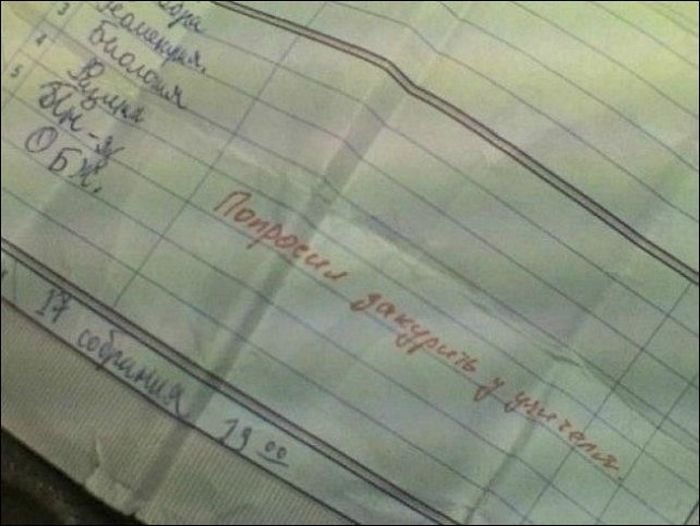 3
Геометрия.
4
Биология
5
Физика
ОБЖ.
Попросил закурить у учителя.
17 собрания 19 00